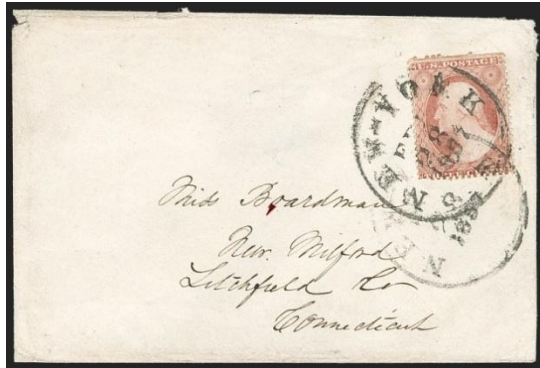 U.S. POSTAGE
NEW-YORK
1857
Miss Boardman
New Milford
Litchfield Co
Connecticut